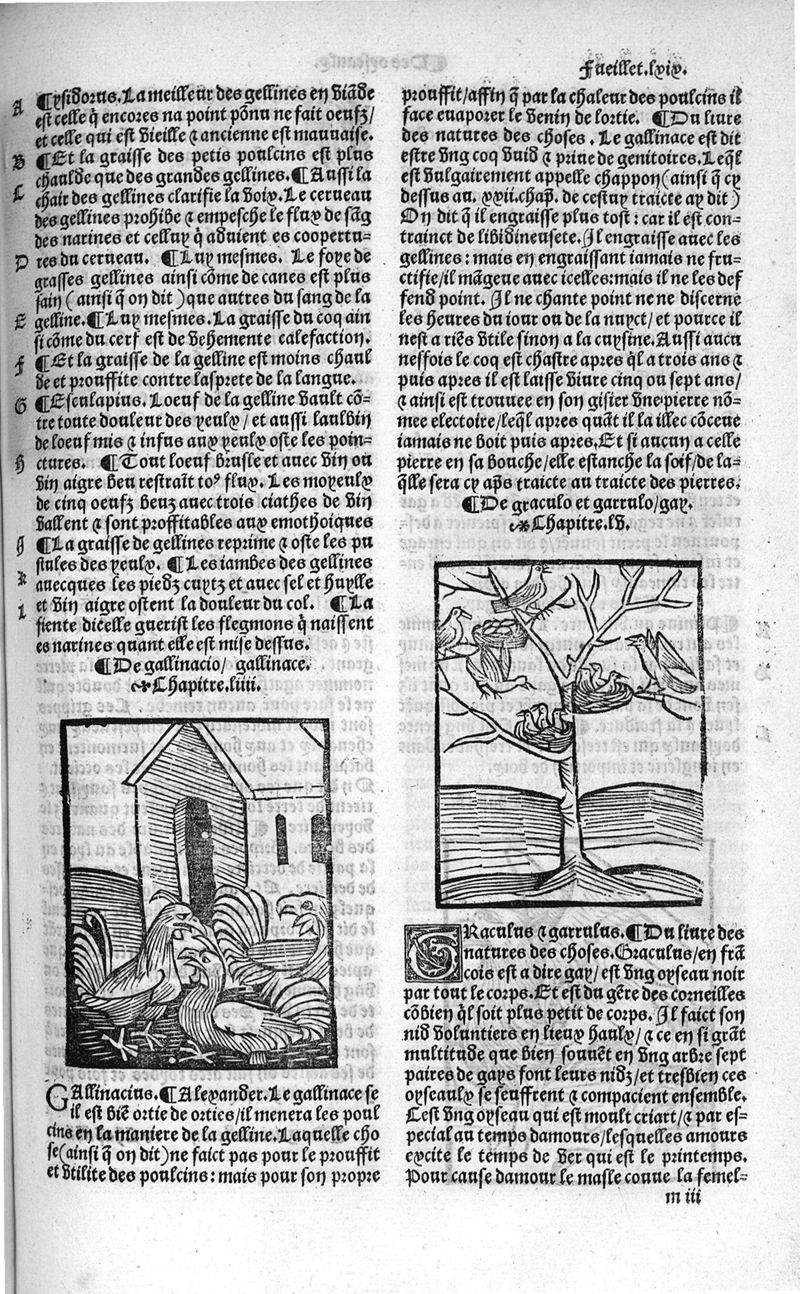 Fueillet.lxix.
A
¶Ysidorus. La meilleur des gellines en viãde
est celle q̃ encores na point põnu ne fait oeufz/
et celle qui est vieille ⁊ ancienne est mauuaise.
B ¶Et la graisse des petis poulcins est plus
chaulde que des grandes gellines. ¶Aussi la
C chair des gellines clarifie la voix. Le cerueau
des gellines prohibe ⁊ empesche le flux de sãg
des narines et celluy q̃ aduient es coopertu-
D res du cerueau. ¶Luy mesmes. Le foye de
grasses gellines ainsi cõme de canes est plus
sain (ainsi q̃ on dit) que autres du sang de la
E gelline. ¶Luy mesmes. La graisse du coq ain
si cõme du cerf est de vehemente calefaction.
F ¶Et la graisse de la gelline est moins chaul
de et prouffite contre lasprete de la langue.
G ¶Esculapius. Loeuf de la gelline vault cõ-
tre toute douleur des yeulx/ et aussi laulbin
de loeuf mis ⁊ infus aux yeulx oste les poin-
H ctures. ¶Tout loeuf brusle et auec vin ou
vin aigre beu restraĩt to⁹ flux. Les moyeulx
de cinq oeufz beuz auec trois ciathes de vin
vallent ⁊ sont proffitables aux emothoiques
J ¶La graisse de gellines reprime ⁊ oste les pu
stules des yeulx. ¶Les iambes des gellines
K auecques les piedz cuytz et auec sel et huylle
et vin aigre ostent la douleur du col. ¶La
L fiente dicelle guerist les flegmons q̃ naissent
es narines quant elle est mise dessus.
¶De gallinacio/ gallinace.
Chapitre.liiii.
GAllinacius. ¶Alexander. Le gallinace se
il est biẽ ortie de orties/ il menera les poul
cins en la maniere de la gelline. Laquelle cho
se (ainsi q̃ on dit) ne faict pas pour le prouffit
et vtilite des poulcins: mais pour son propre
prouffit/ affin q̃ par la chaleur des poulcins il
face euaporer le venin de lortie. ¶Du liure
des natures des choses. Le gallinace est dit
estre vng coq vuid ⁊ priue de genitoires. Leq̃l
est vulgairement appelle chappon (ainsi q̃ cy
dessus au .xxii. chap̃. de cestuy traicte ay dit)
On dit q̃ il engraisse plus tost: car il est con-
trainct de libidineusete. Il engraisse auec les
gellines: mais en engraissant iamais ne fru-
ctifie/ il mãgeue auec icelles: mais il ne les def
fend point. Il ne chante point ne ne discerne
les heures du iour ou de la nuyct/ et pource il
nest a riẽs vtile sinon a la cuysine. Aussi aucu
nesfois le coq est chastre apres q̃l a trois ans ⁊
puis apres il est laisse viure cinq ou sept ans/
⁊ ainsi est trouuee en son gisier vne pierre nõ-
mee electoire/ leq̃l apres quãt il la illec cõceue
iamais ne boit puis apres. Et si aucun a celle
pierre en sa bouche/ elle estanche la soif/ de la-
q̃lle sera cy ap̃s traicte au traicte des pierres.
¶De graculo et garrulo/ gay.
Chapitre.lv.
GRaculus ⁊ garrulus. ¶Du liure des
natures des choses. Graculus/ en frã
cois est a dire gay/ est vng oyseau noir
par tout le corps. Et est du gẽre des corneilles
cõbien q̃l soit plus petit de corps. Il faict son
nid voluntiers en lieux haulx/ ⁊ ce en si grãt
multitude que bien souuẽt en vng arbre sept
paires de gays font leurs nidz/ et tresbien ces
oyseaulx se seuffrent ⁊ compacient ensemble.
Cest vng oyseau qui est moult criart/ ⁊ par es-
pecial au temps damours/ lesquelles amours
excite le temps de ver qui est le printemps.
Pour cause damour le masle couue la femel-
m iii